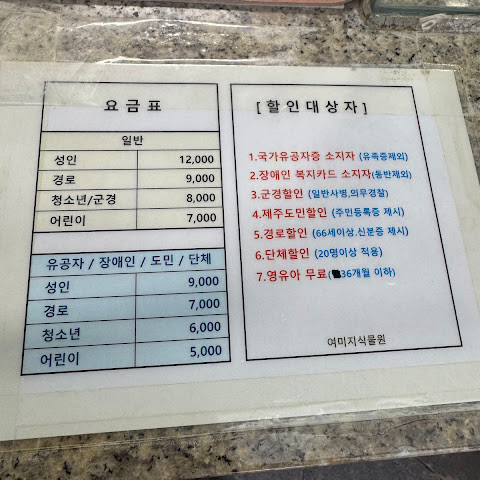 요금표
일반
성인 12,000
경로 9,000
청소년/군경 8,000
어린이 7,000
유공자 / 장애인 / 도민 / 단체
성인 9,000
경로 7,000
청소년 6,000
어린이 5,000
[ 할인대상자 ]
1.국가유공자증 소지자 (유족증제외)
2.장애인 복지카드 소지자(동반제외)
3.군경할인 (일반사병,의무경찰)
4.제주도민할인 (주민등록증 제시)
5.경로할인 (66세이상.신분증 제시)
6.단체할인 (20명이상 적용)
7.영유아 무료(36개월 이하)
여미지식물원